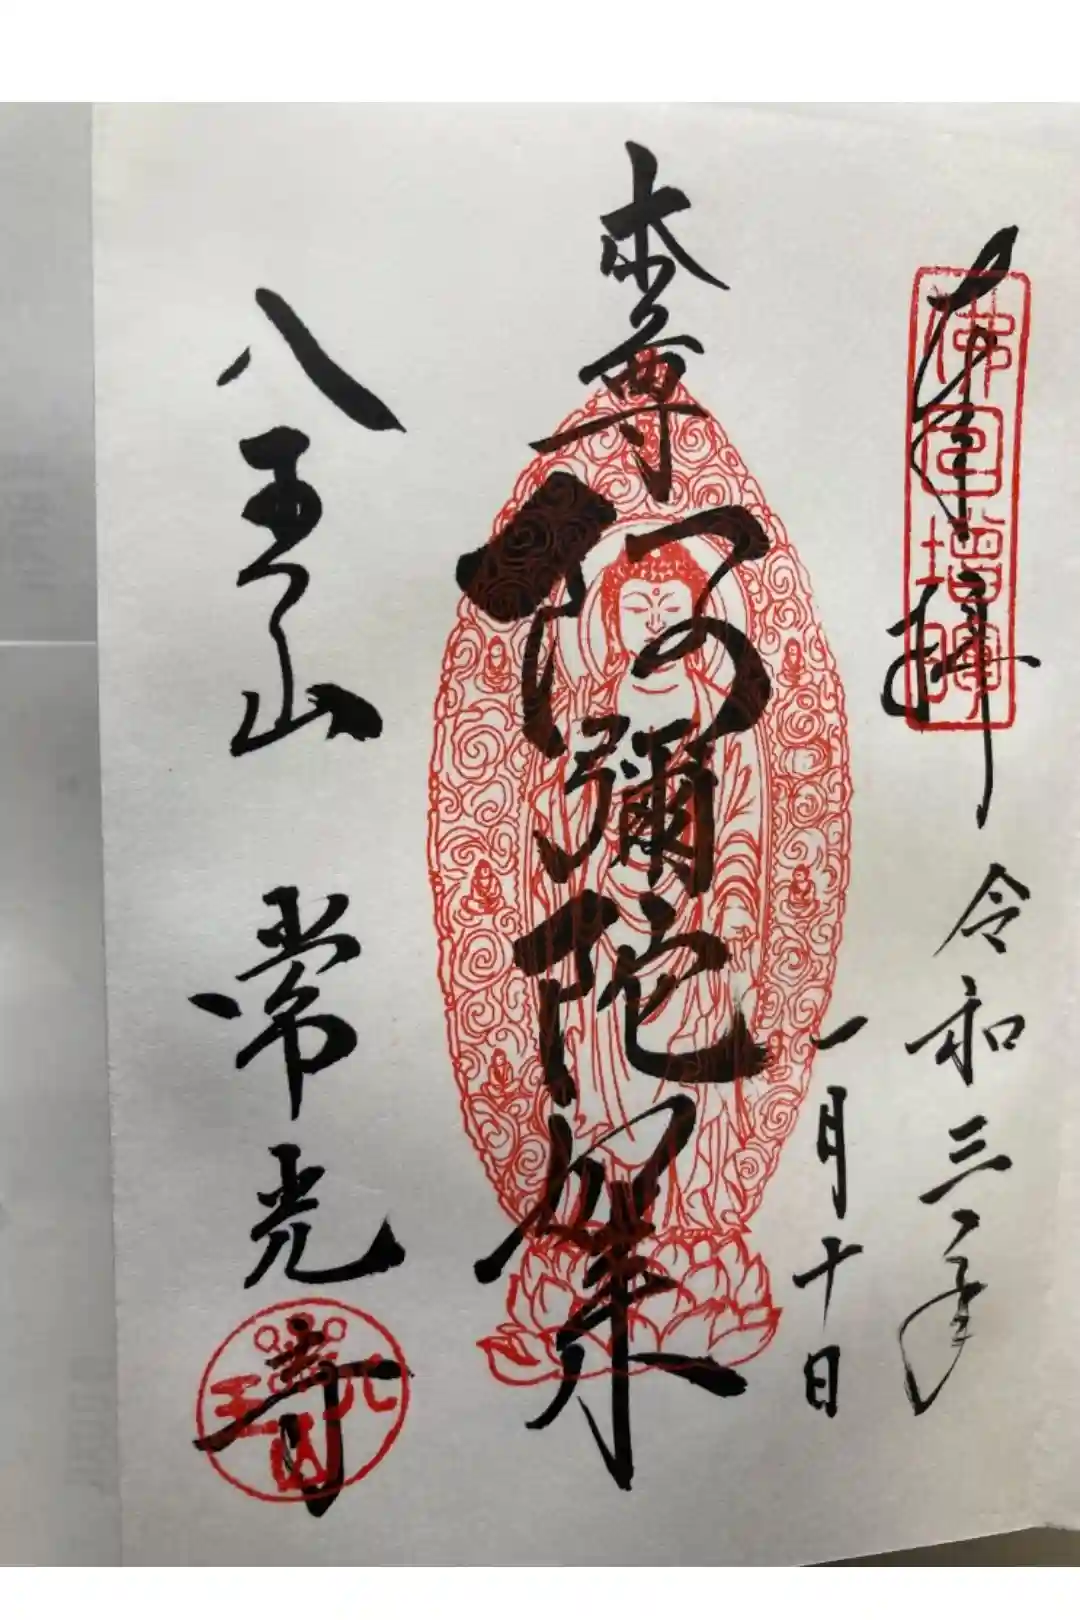 奉拝 令和三年
佛日増輝
一月十日
本尊 阿彌陀如来
八王山 常光寺
八王山